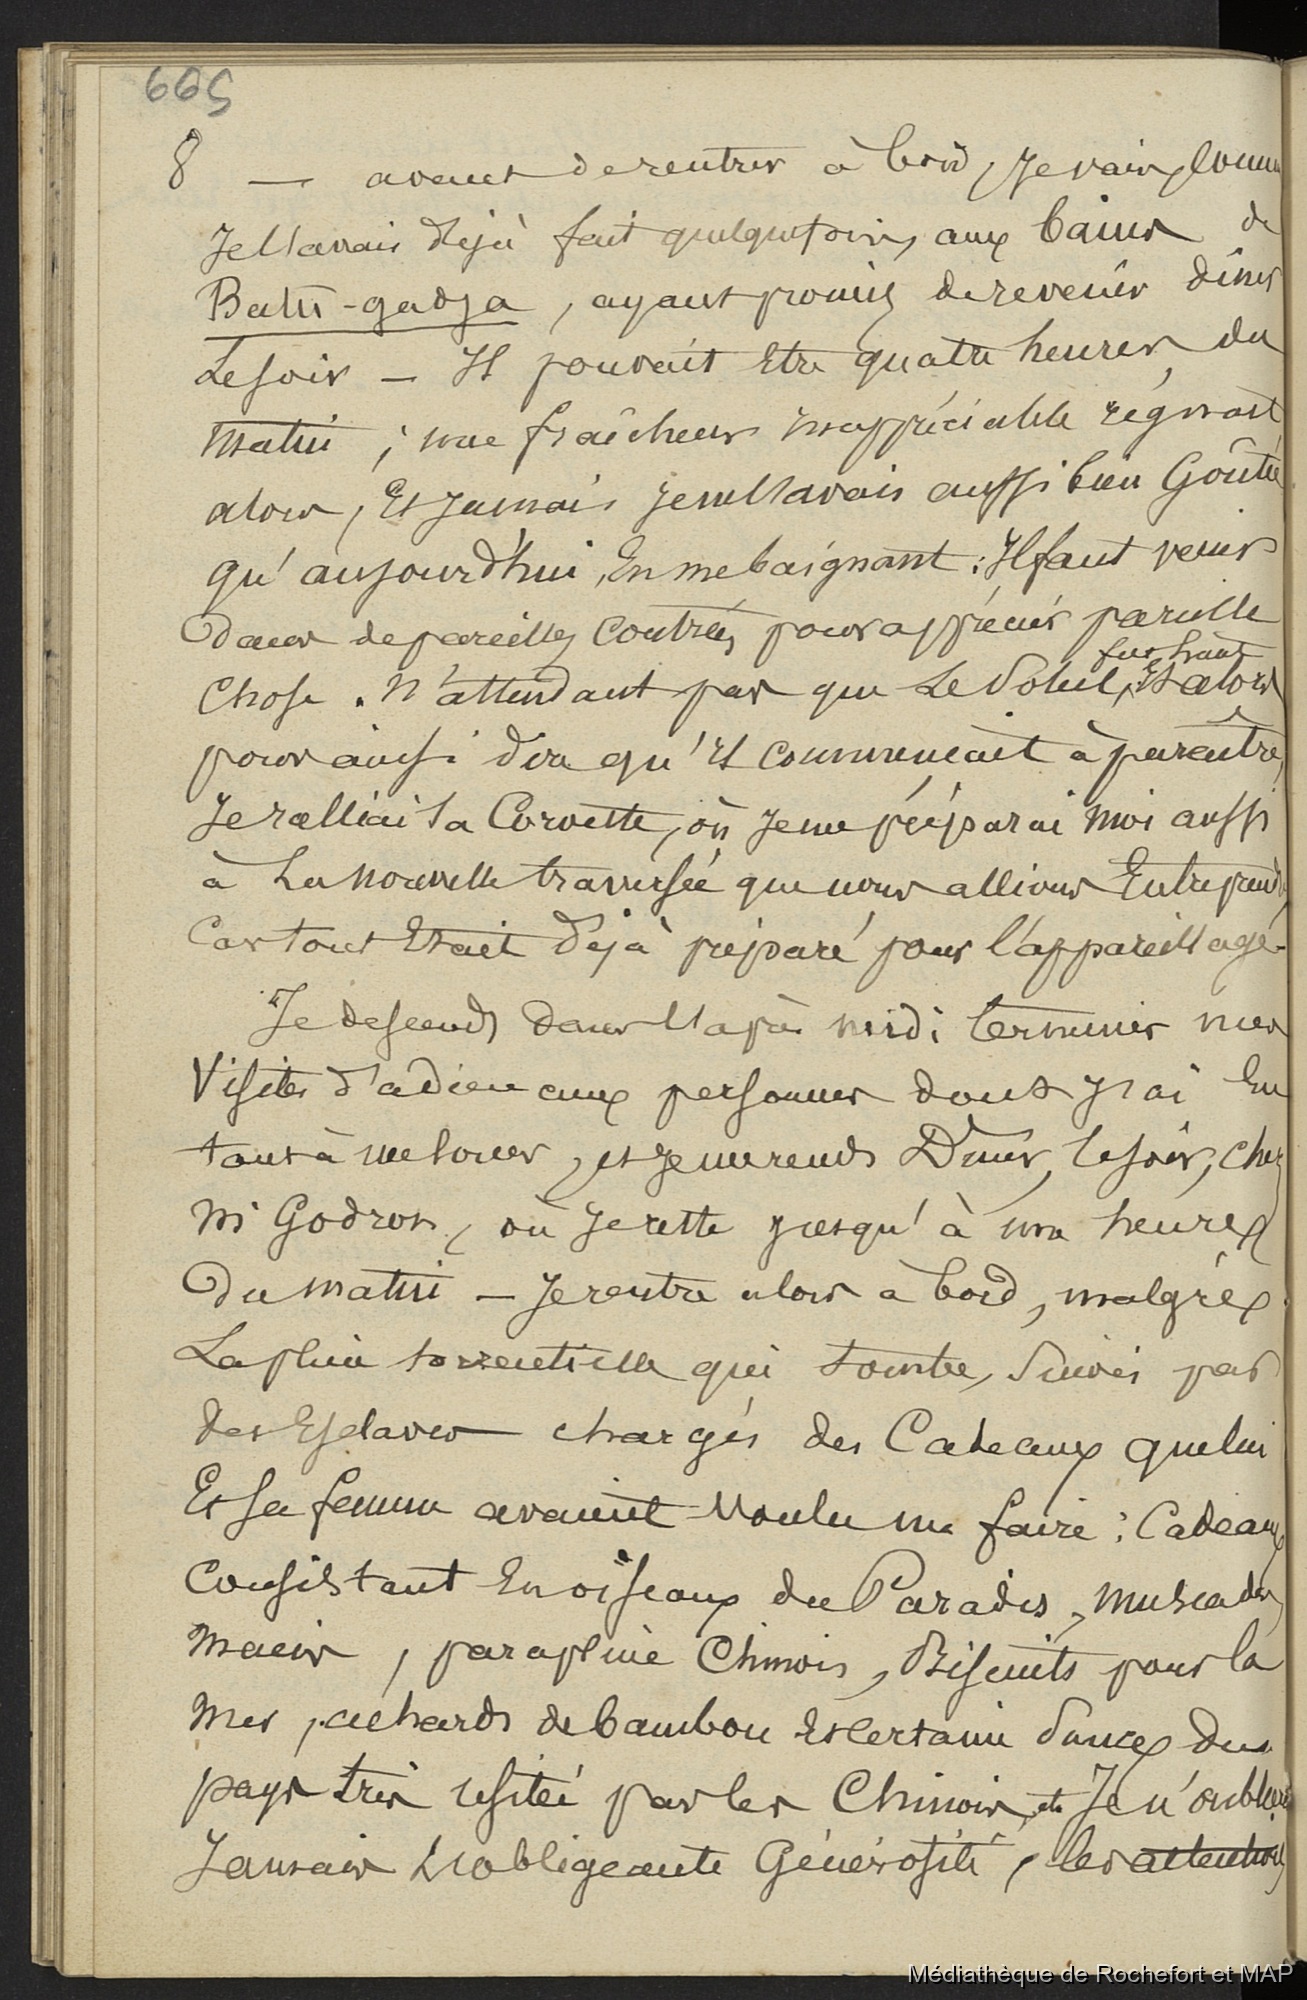 665
8 — avant de rentrer à bord, je vais, comme
je l'avais déjà fait quelquefois, aux bains de
Batu-gadja, ayant promis de revenir dîner
le soir — Il pouvait être quatre heures, du
matin ; une fraîcheur inappréciable régnait
alors, et jamais je ne l'avais aussi bien goûtée
qu'aujourd'hui, en me baignant : Il faut venir
dans de pareilles contrées pour apprécier pareille
fut haut
chose. N'attendant pas que le Soleil, et alors
pour ainsi dire qu'il commençait à paraître,
je ralliai la Corvette, où je me préparai moi aussi
à la nouvelle traversée que nous allions entreprendre,
car tout était déjà préparé pour l'appareillage.
Je descends dans l'après midi terminer mes
visites d'adieu aux personnes dont j'ai eu
tant à me louer, et je me rends dîner, le soir, chez
Mr Godron, où je reste jusqu'à une heure
du matin — je rentre alors à bord, malgré
la pluie torrentielle qui tombe, suivi par
des esclaves chargés des cadeaux que lui
et sa femme avaient voulu me faire : Cadeaux
consistant en oiseaux du Paradis, muscades,
macis, parapluie chinois, Biscuits pour la
mer, achards de bambou et certaine sauce du
pays très usitée par les Chinois, et je n'oublierai
jamais l'obligeante générosité, les attentions
Médiathèque de Rochefort et MAP